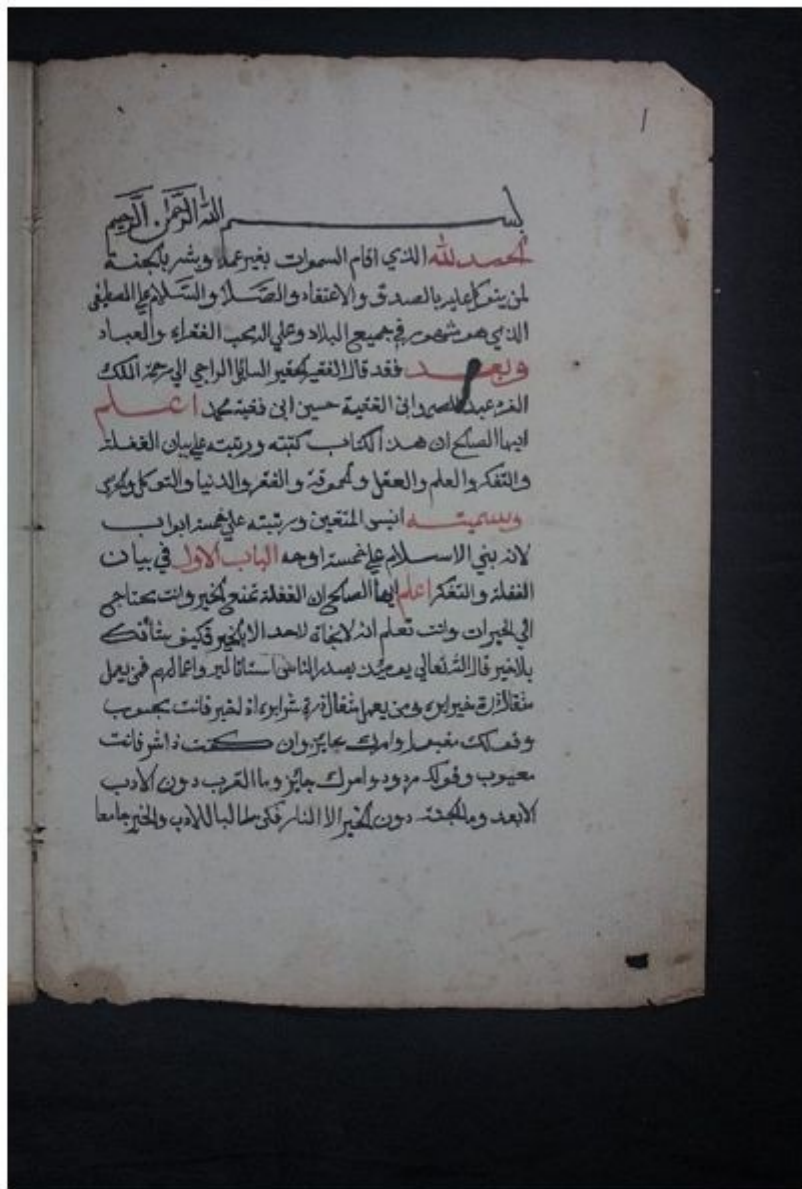 ١
بسم الله الرحمن الرحيم
الحمد لله الذي اقام السموات بغير عماد وبشر بالجنة
لمن يتوكل عليه بالصدق والاعتقاد والصلاة والسلام علي المصطفى
الذي هو مشهور في جميع البلاد وعلي اله محب الفقراء والعباد
وبعد فقد قال الفقير الحقير السائل الراجي الي رحمة الملك
عبد ابن الفقية حسين ابن فقيه محمد اعلم
ايها الصالح ان هذ الكتاب كتبته ورتبته علي بيان الغفلة
والتفكر والعلم والعقل والفقر والدنيا والتوكل
وسميته انيس المتقين ورتبته علي خمسة ابواب
لانه بني الاسلام علي خمسة اوجه الباب الاول في بيان
الغفلة والتفكر اعلم ايها الصالح ان الغفلة تمنع الخير وانت تحتاجي
الي الخيرات وانت تعلم انه لانجاة لاحد الا بالخير فكيف شأنك
بلا خير قال الله تعالي يومئذ يصدر الناس اشتاتا ليروا اعمالهم فمن يعمل
مثقال ذرة خيرا يره ومن يعمل مثقال ذرة شرا يره لخير فانت
وامرك جايز وان كنت فانت
معيوب وقولك مردود وامرك جايز وما القرب دون الادب
الا بعد وما الجنة دون الخير الا النار فكن طالبا للادب والخير جامعا